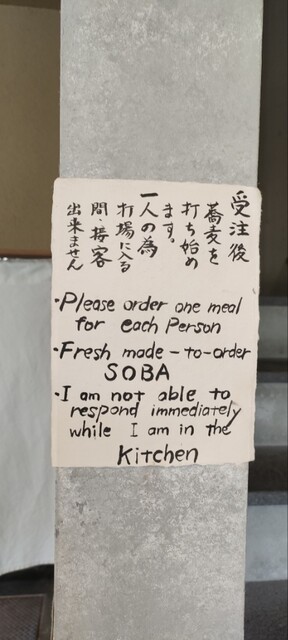 受注後
蕎麦を
打ち始め
ます。
一人の為
打場に入る
間、接客
出来ません
・Please order one meal
for each Person
・Fresh made-to-order
SOBA
・I am not able to
respond immediately
while I am in the
Kitchen